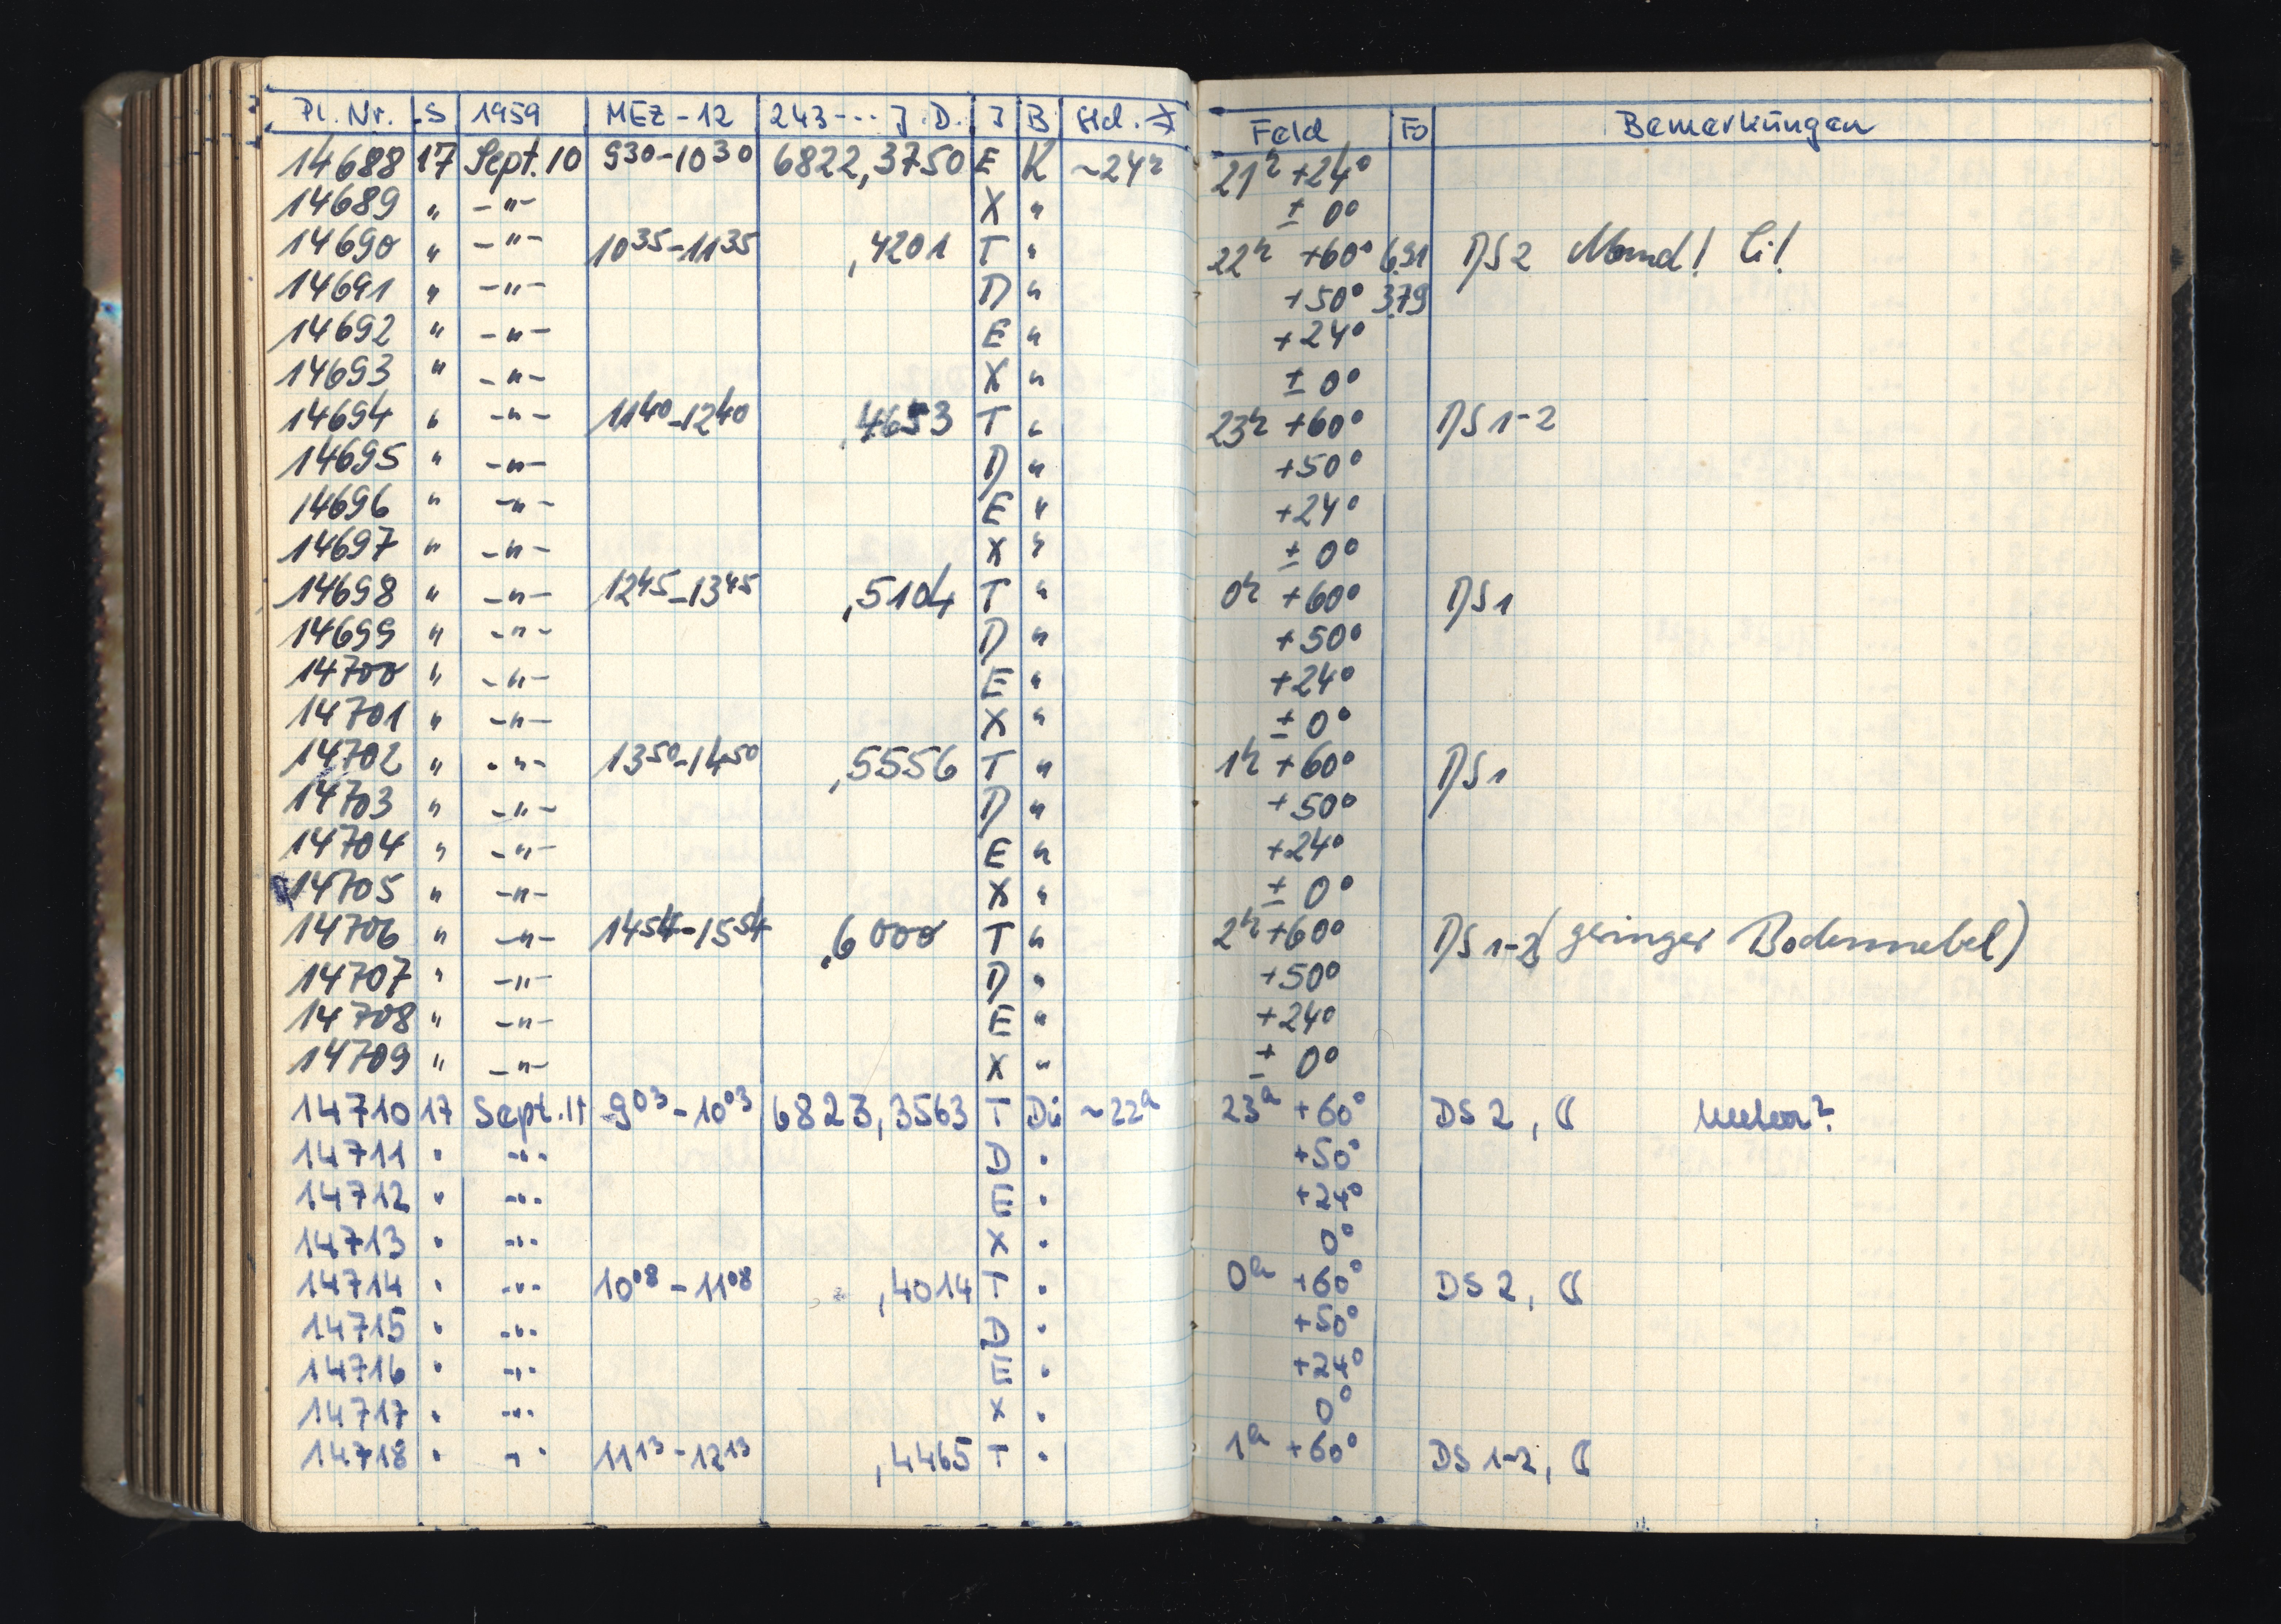 Pl. Nr. S 1959 MEZ - 12 243 --- J.D. J B Std. Feld Fo Bemerkungen
14688 17 Sept. 10 9 30 - 10 30 6822,3750 E K ~24h 21h +24°
14689 " -"- X " ± 0°
14690 " -"- 10 35 - 11 35 ,4201 T " 22h +60° 6.91 DS 2 Mond! Ci!
14691 " -"- D " +50° 3.79
14692 " -"- E " +24°
14693 " -"- X " ± 0°
14694 " -"- 11 40 - 12 40 ,4653 T " 23h +60° DS 1-2
14695 " -"- D " +50°
14696 " -"- E " +24°
14697 " -"- X " ± 0°
14698 " -"- 12 45 - 13 45 ,5104 T " 0h +60° DS 1
14699 " -"- D " +50°
14700 " -"- E " +24°
14701 " -"- X " ± 0°
14702 " -"- 13 50 - 14 50 ,5556 T " 1h +60° DS 1
14703 " -"- D " +50°
14704 " -"- E " +24°
14705 " -"- X " ± 0°
14706 " -"- 14 54 - 15 54 ,6000 T " 2h +60° DS 1-2 (geringer Bodennebel)
14707 " -"- D " +50°
14708 " -"- E " +24°
14709 " -"- X " ± 0°
14710 17 Sept. 11 9 03 - 10 03 6823,3563 T Dü ~22h 23h +60° DS 2, ☾
14711 " -"- D " +50°
14712 " -"- E " +24°
14713 " -"- X " 0°
14714 " -"- 10 08 - 11 08 ,4014 T " 0h +60° DS 2, ☾
14715 " -"- D " +50°
14716 " -"- E " +24°
14717 " -"- X " 0°
14718 " -"- 11 13 - 12 13 ,4465 T " 1h +60° DS 1-2, ☾